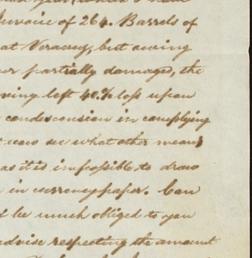 Invoice of 264. Barrels of
at Veracruz, but owing
partially damaged, the
ving left 40.% loss upon
condescension in complying
see what other means
as it is impossible to draw
in currency paper. Can
be much obliged to you
advise respecting the amount